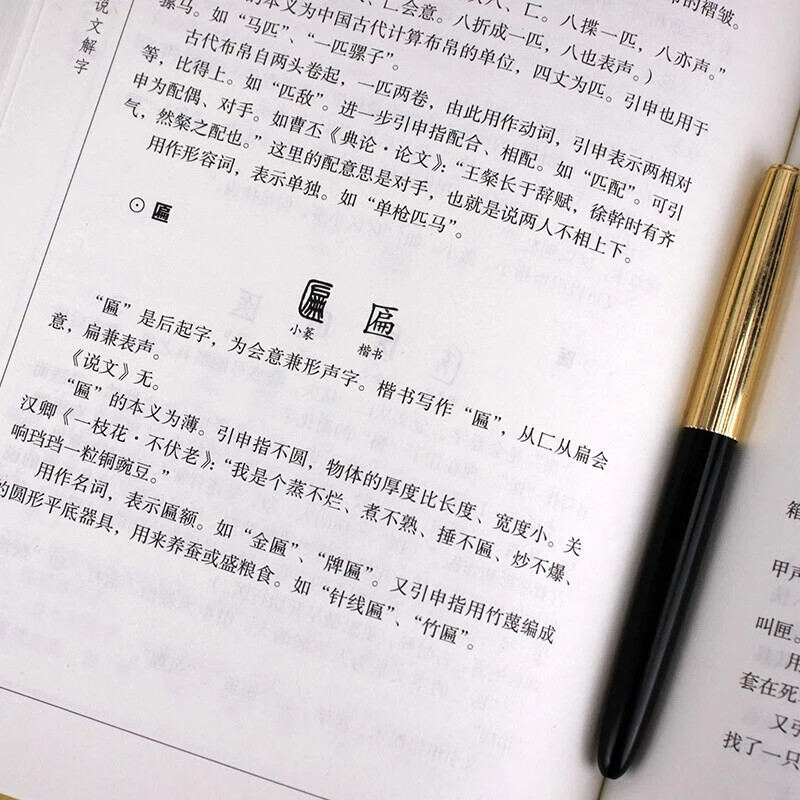 说文解字
八、匚。八揲一匹，八亦声。”
匚会意。八折成一匹，八也表声。）
的本义为中国古代计算布帛的单位，四丈为匹。引申也用于
骡马。如“马匹”、“一匹骡子”。
古代布帛自两头卷起，一匹两卷，由此用作动词，引申表示两相对
等，比得上。如“匹敌”。进一步引申指配合、相配。如“匹配”。可引
申为配偶、对手。如曹丕《典论·论文》：“王粲长于辞赋，徐幹时有齐
气，然粲之配也。”这里的配意思是对手，也就是说两人不相上下。
用作形容词，表示单独。如“单枪匹马”。
⊙匾
匾 匾
小篆 楷书
“匾”是后起字，为会意兼形声字。楷书写作“匾”，从匚从扁会
意，扁兼表声。
《说文》无。
“匾”的本义为薄。引申指不圆，物体的厚度比长度、宽度小。关
汉卿《一枝花·不伏老》：“我是个蒸不烂、煮不熟、捶不匾、炒不爆、
响珰珰一粒铜豌豆。”
用作名词，表示匾额。如“金匾”、“牌匾”。又引申指用竹蔑编成
的圆形平底器具，用来养蚕或盛粮食。如“针线匾”、“竹匾”。
箱
甲声
叫匣。
用
套在死
又引
找了一只